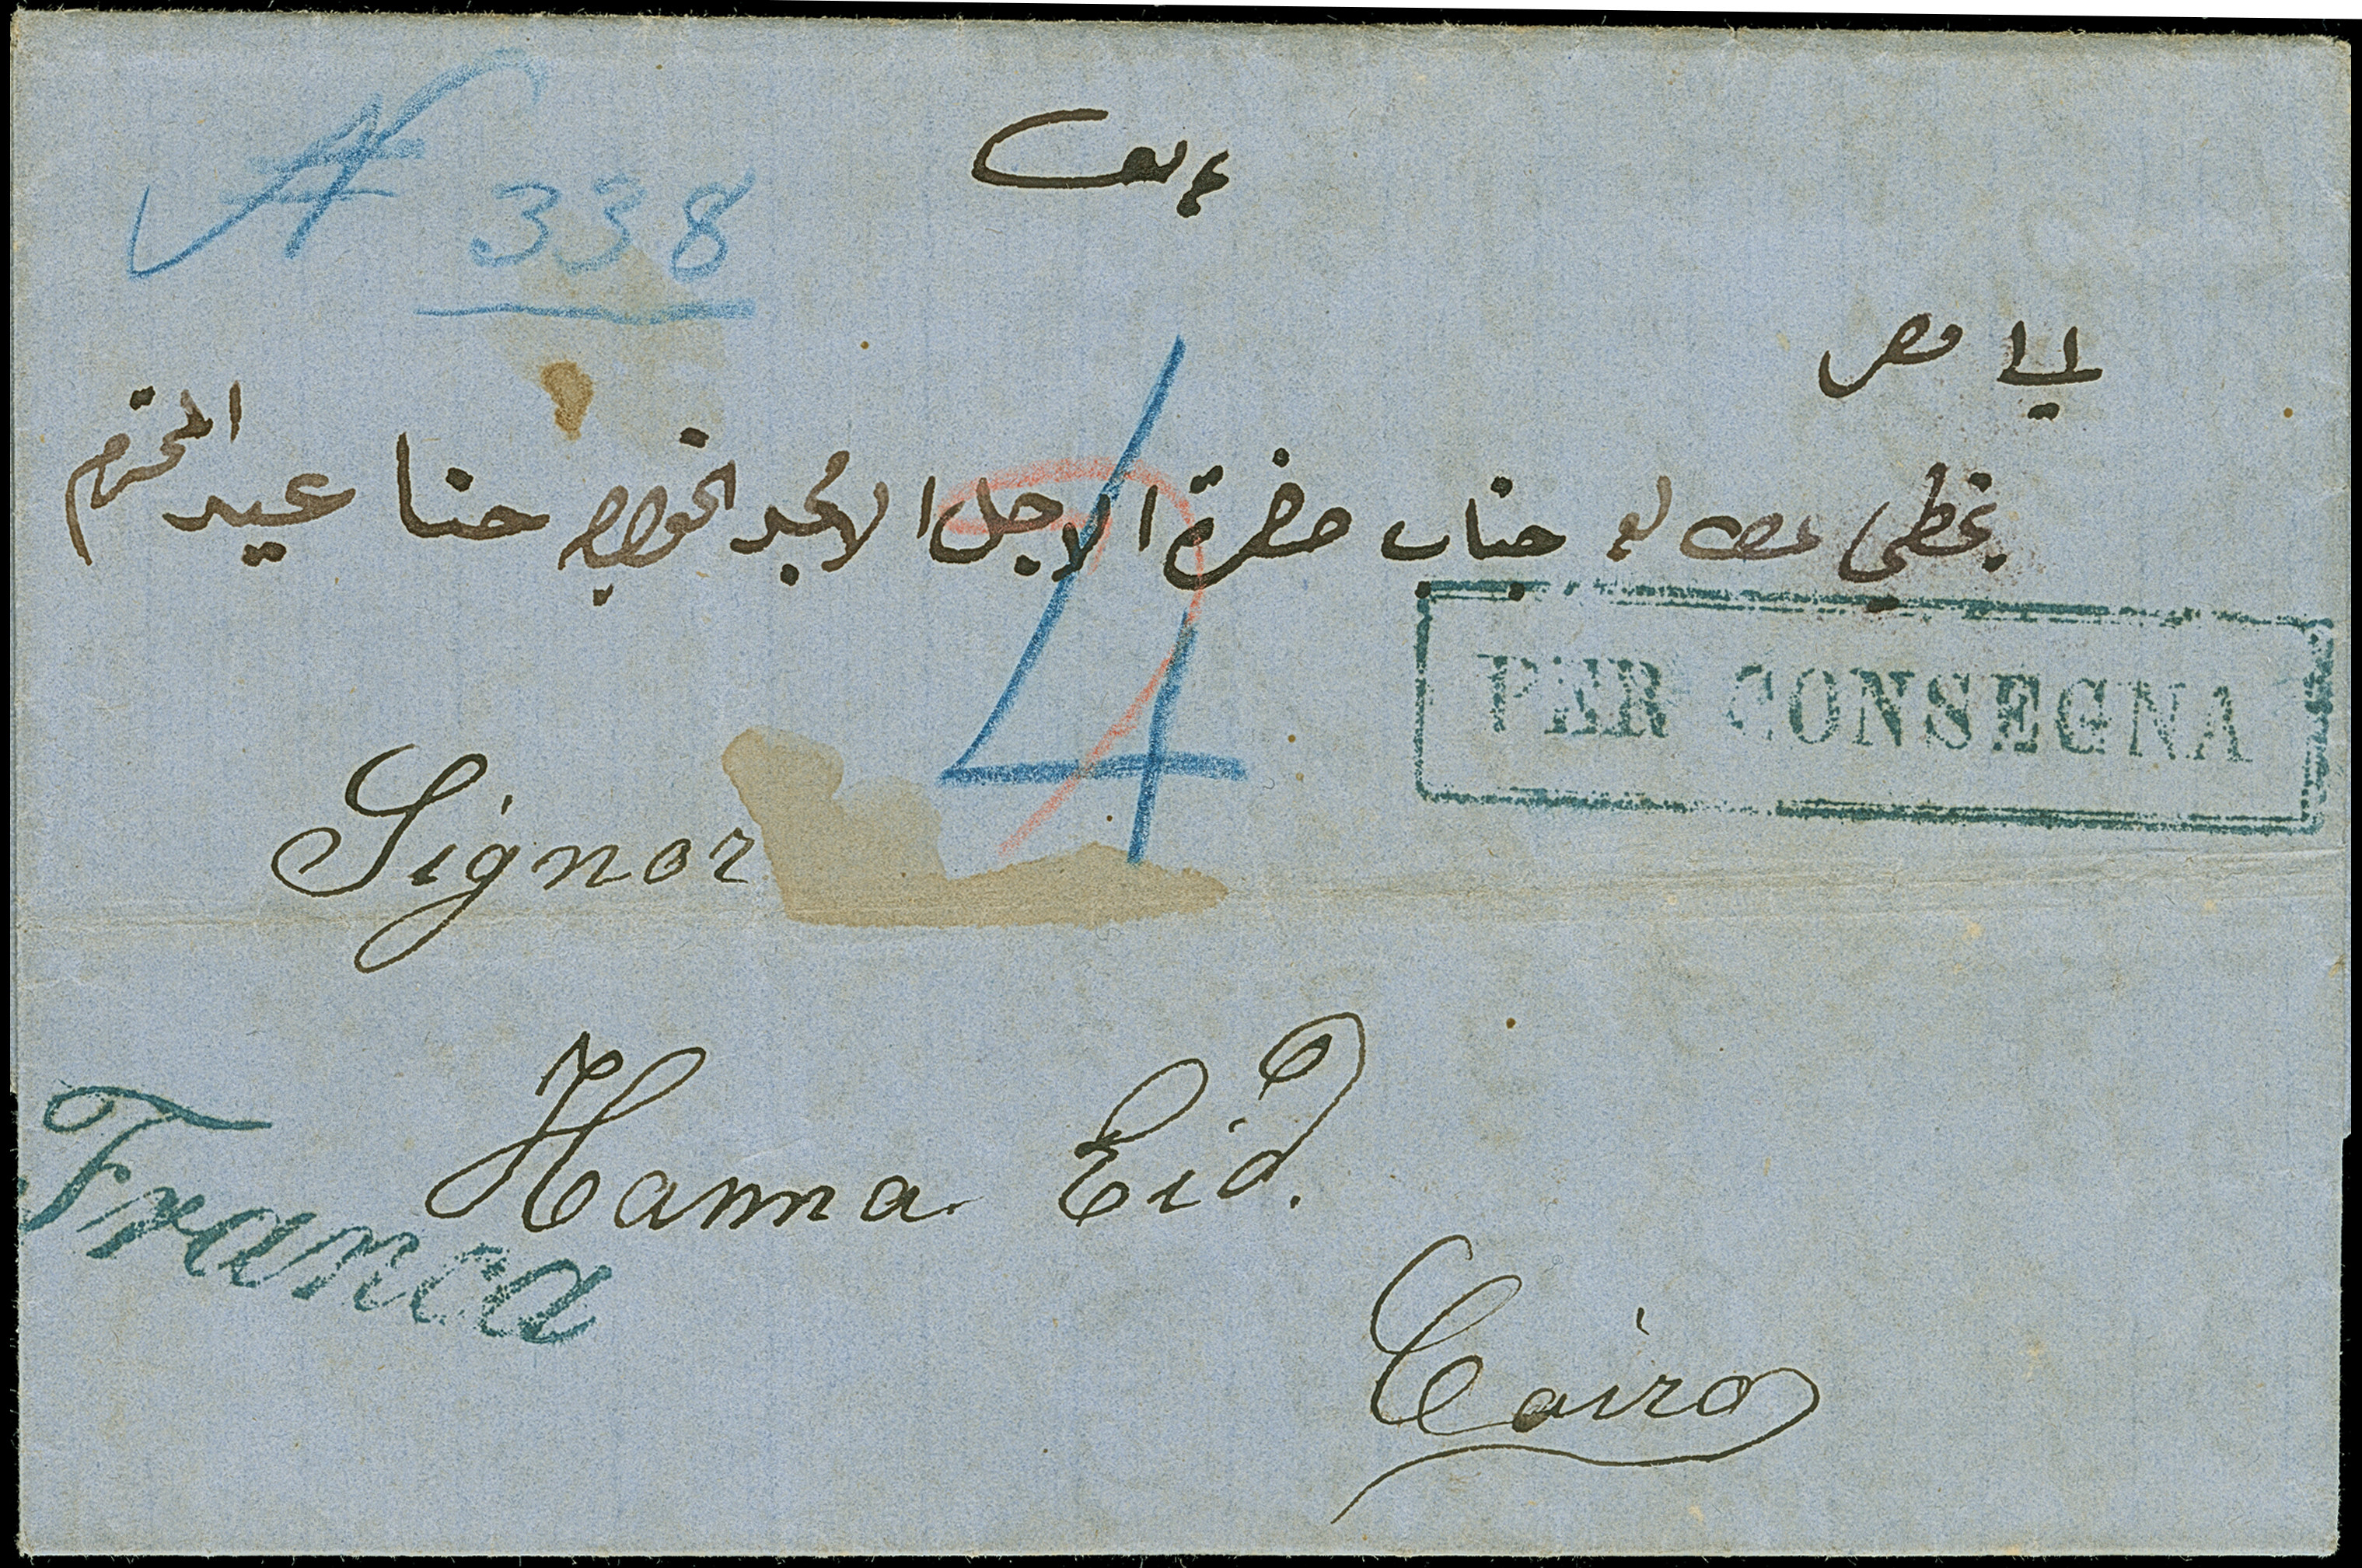 338
الى مصر
يحظى جناب حضرة الاجل الامجد الخواجه حنا عيد المحترم
4
PER CONSEGNA
Signor
Hanna Eid.
Franca
Cairo